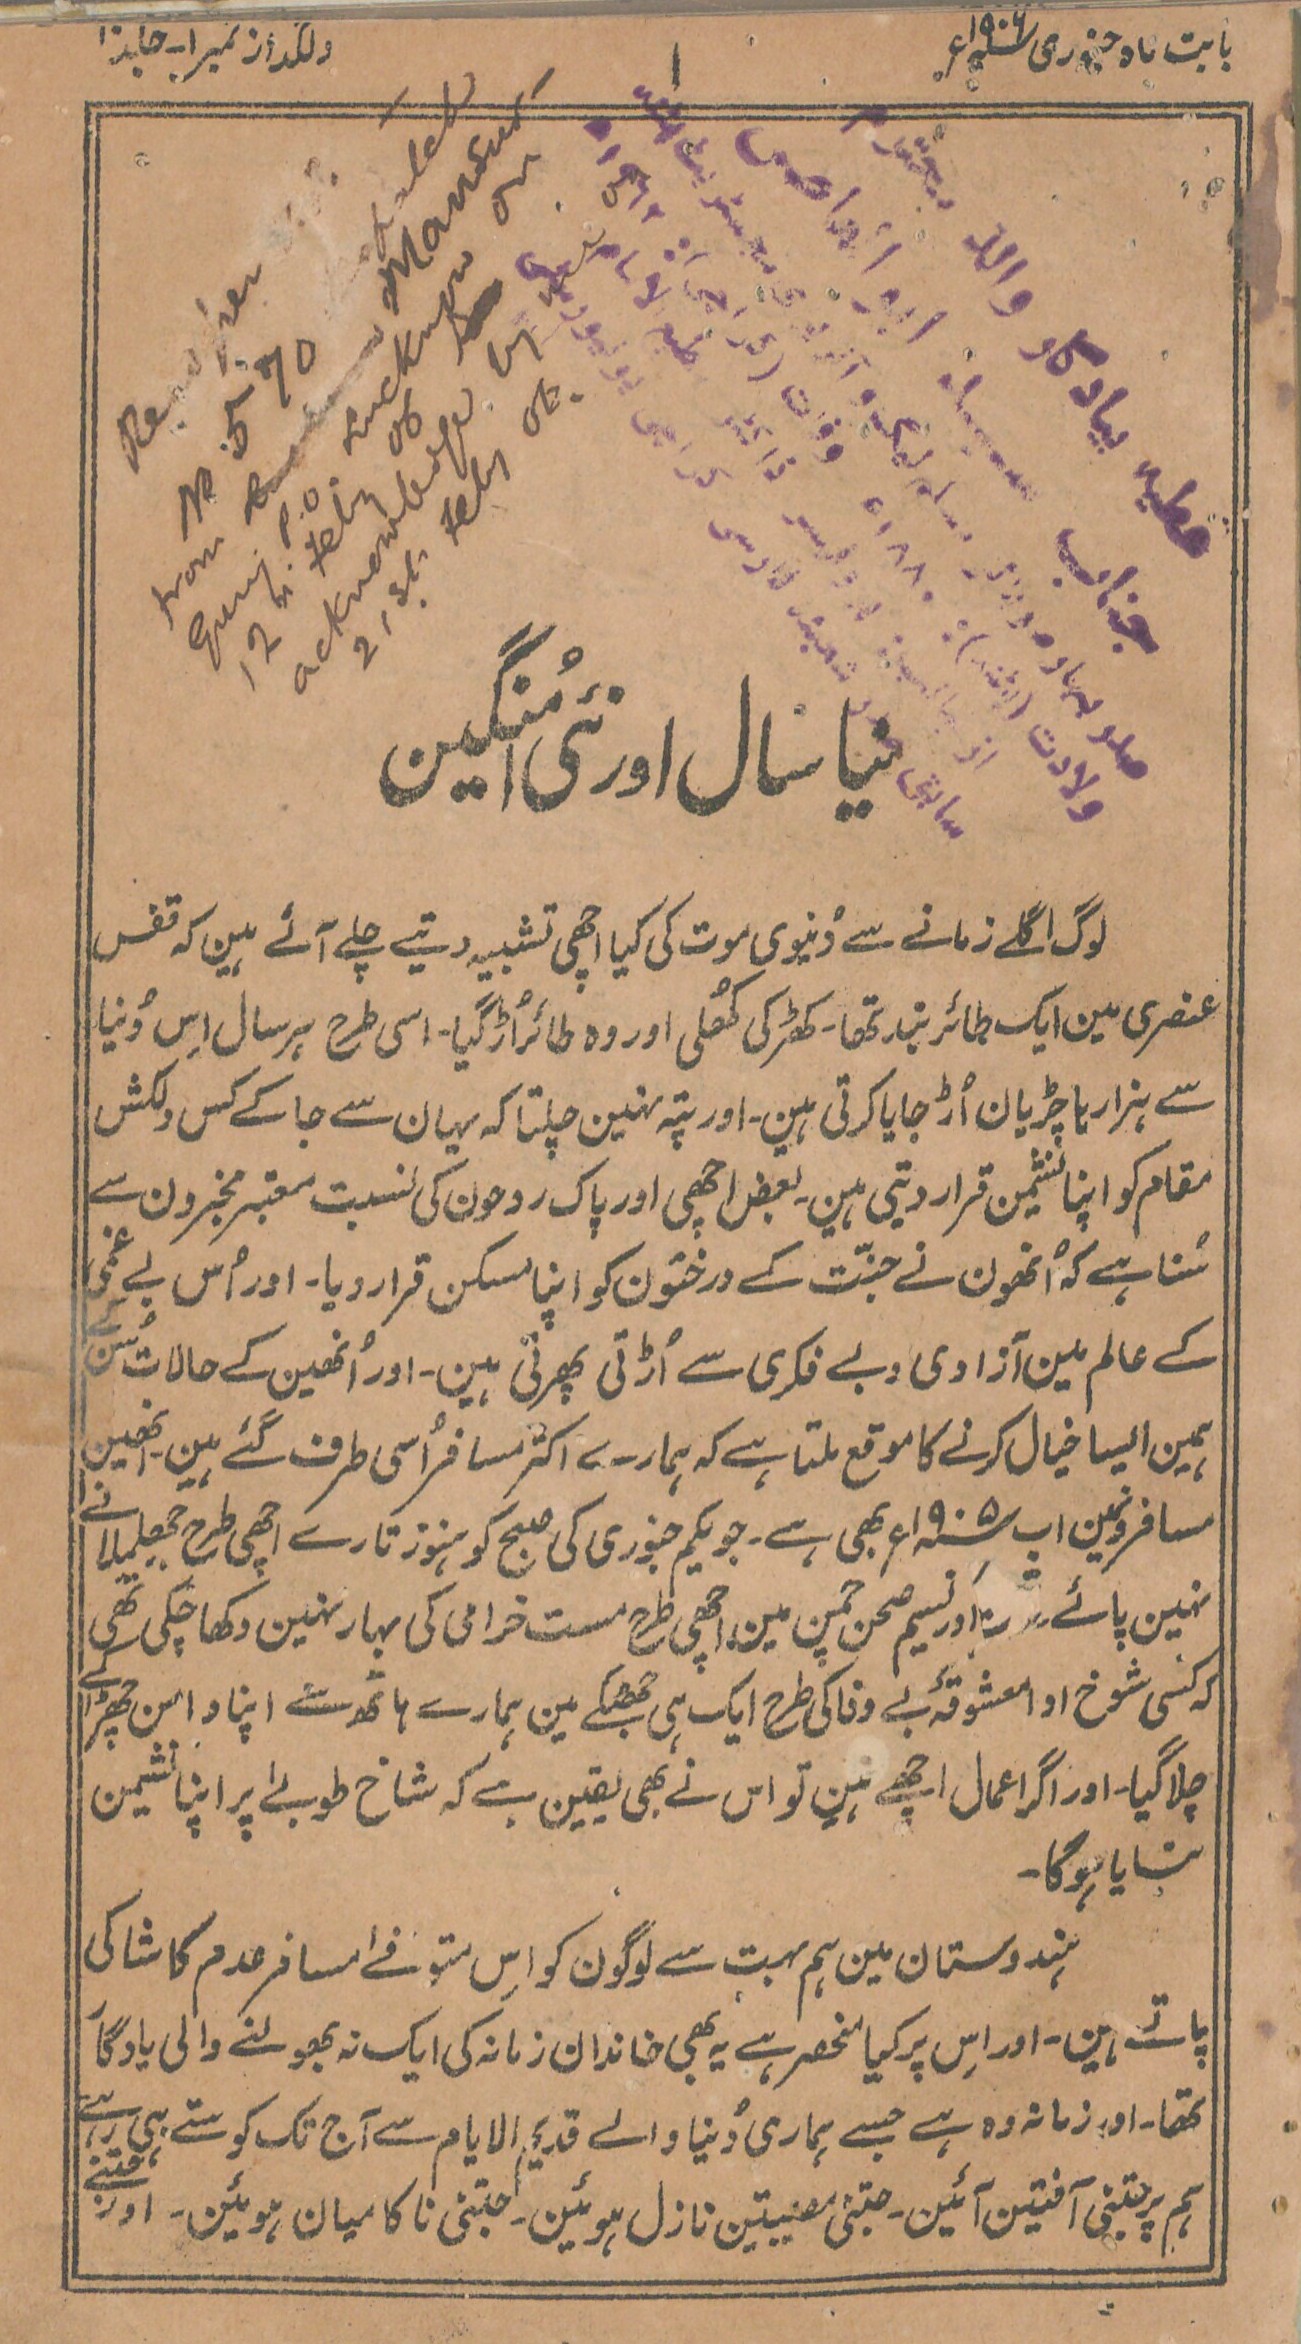 بابت ماہ جنوری سنہ ۱۹۰۶ء
۱
دلگداز نمبر ۱۔ جلد ۱۰
عطیہ بیادگار والد محترم
جناب
ولادت ۱۸۸۰ء وفات
سابق صدر شعبۂ فارسی کراچی یونیورسٹی
No 570
from Mansur
Gunj P.O. Lucknow on
12th Feby 06
acknowledged by me
21st Feby 06.
نیا سال اور نئی اُمنگین
لوگ اگلے زمانے سے دُنیوی موت کی کیا اچھی تشبیہ دیتے چلے آئے ہین کہ قفس
عنصری مین ایک طائر بند تھا۔ کھڑکی کھُلی اور وہ طائر اُڑ گیا۔ اسی طرح ہر سال اِس دُنیا
سے ہزارہا چڑیان اُڑ جایا کرتی ہین۔ اور پتہ نہین چلتا کہ یہان سے جا کے کس دلکش
مقام کو اپنا نشیمن قرار دیتی ہین۔ بعض اچھی اور پاک روحون کی نسبت معتبر مخبرون سے
سُنا ہے کہ اُنھون نے جنّت کے درختون کو اپنا مسکن قرار دیا۔ اور اُس بے غمی
کے عالم مین آزادی و بے فکری سے اُڑتی پھرتی ہین۔ اور اُنھین کے حالات سُن کے
ہمین ایسا خیال کرنے کا موقع ملتا ہے کہ ہمارے اکثر مسافر اُسی طرف گئے ہین۔ انھین
مسافرونمین اب سنہ ۱۹۰۵ء بھی ہے۔ جو یکم جنوری کی صبح کو ہنوز تارے اچھی طرح جھلملانے
نہین پائے اور نسیم صحن چمن مین اچھی طرح مست خرامی کی بہار نہین دکھا چکی تھی
کہ کسی شوخ ادا معشوقۂ بے وفا کی طرح ایک ہی جھٹکے مین ہمارے ہاتھ سے اپنا دامن چھڑا کے
چلا گیا۔ اور اگر اعمال اچھے ہین تو اس نے بھی یقین ہے کہ شاخ طوبےٰ پر اپنا نشیمن
بنایا ہوگا۔
ہندوستان مین ہم بہت سے لوگون کو اِس متوفےٰ مسافر عدم کا شاکی
پاتے ہین۔ اور اِس پر کیا منحصر ہے یہ بھی خاندان زمانہ کی ایک نہ بھولنے والی یادگار
تھا۔ اور زمانہ وہ ہے جسے ہماری دُنیا والے قدیم الایام سے آج تک کوستے ہی رہے
ہم پر جتنی آفتین آئین۔ جتنی مصیبتین نازل ہوئین۔ جتنی ناکامیان ہوئین۔ اور جتنے